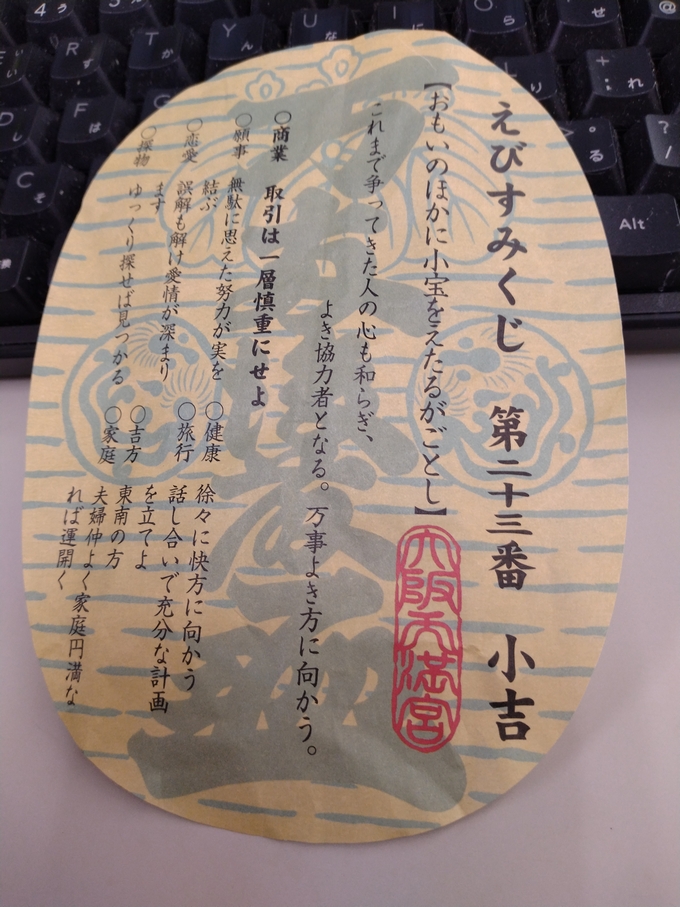 えびすみくじ 第二十三番 小吉
【おもいのほかに小宝をえたるがごとし】
大阪天満宮
これまで争ってきた人の心も和らぎ、
よき協力者となる。万事よき方に向かう。
〇商業 取引は一層慎重にせよ
〇願事 無駄に思えた努力が実を
結ぶ
〇恋愛 誤解も解け愛情が深まり
ます
〇探物 ゆっくり探せば見つかる
〇健康 徐々に快方に向かう
〇旅行 話し合いで充分な計画
を立てよ
〇吉方 東南の方
〇家庭 夫婦仲よく家庭円満な
れば運開く
4 う
R す
T か
Y ん
U な
I に
O ら
せ
@
F は
G
D し
C そ
+ ; れ
> 。 る
? /
Alt